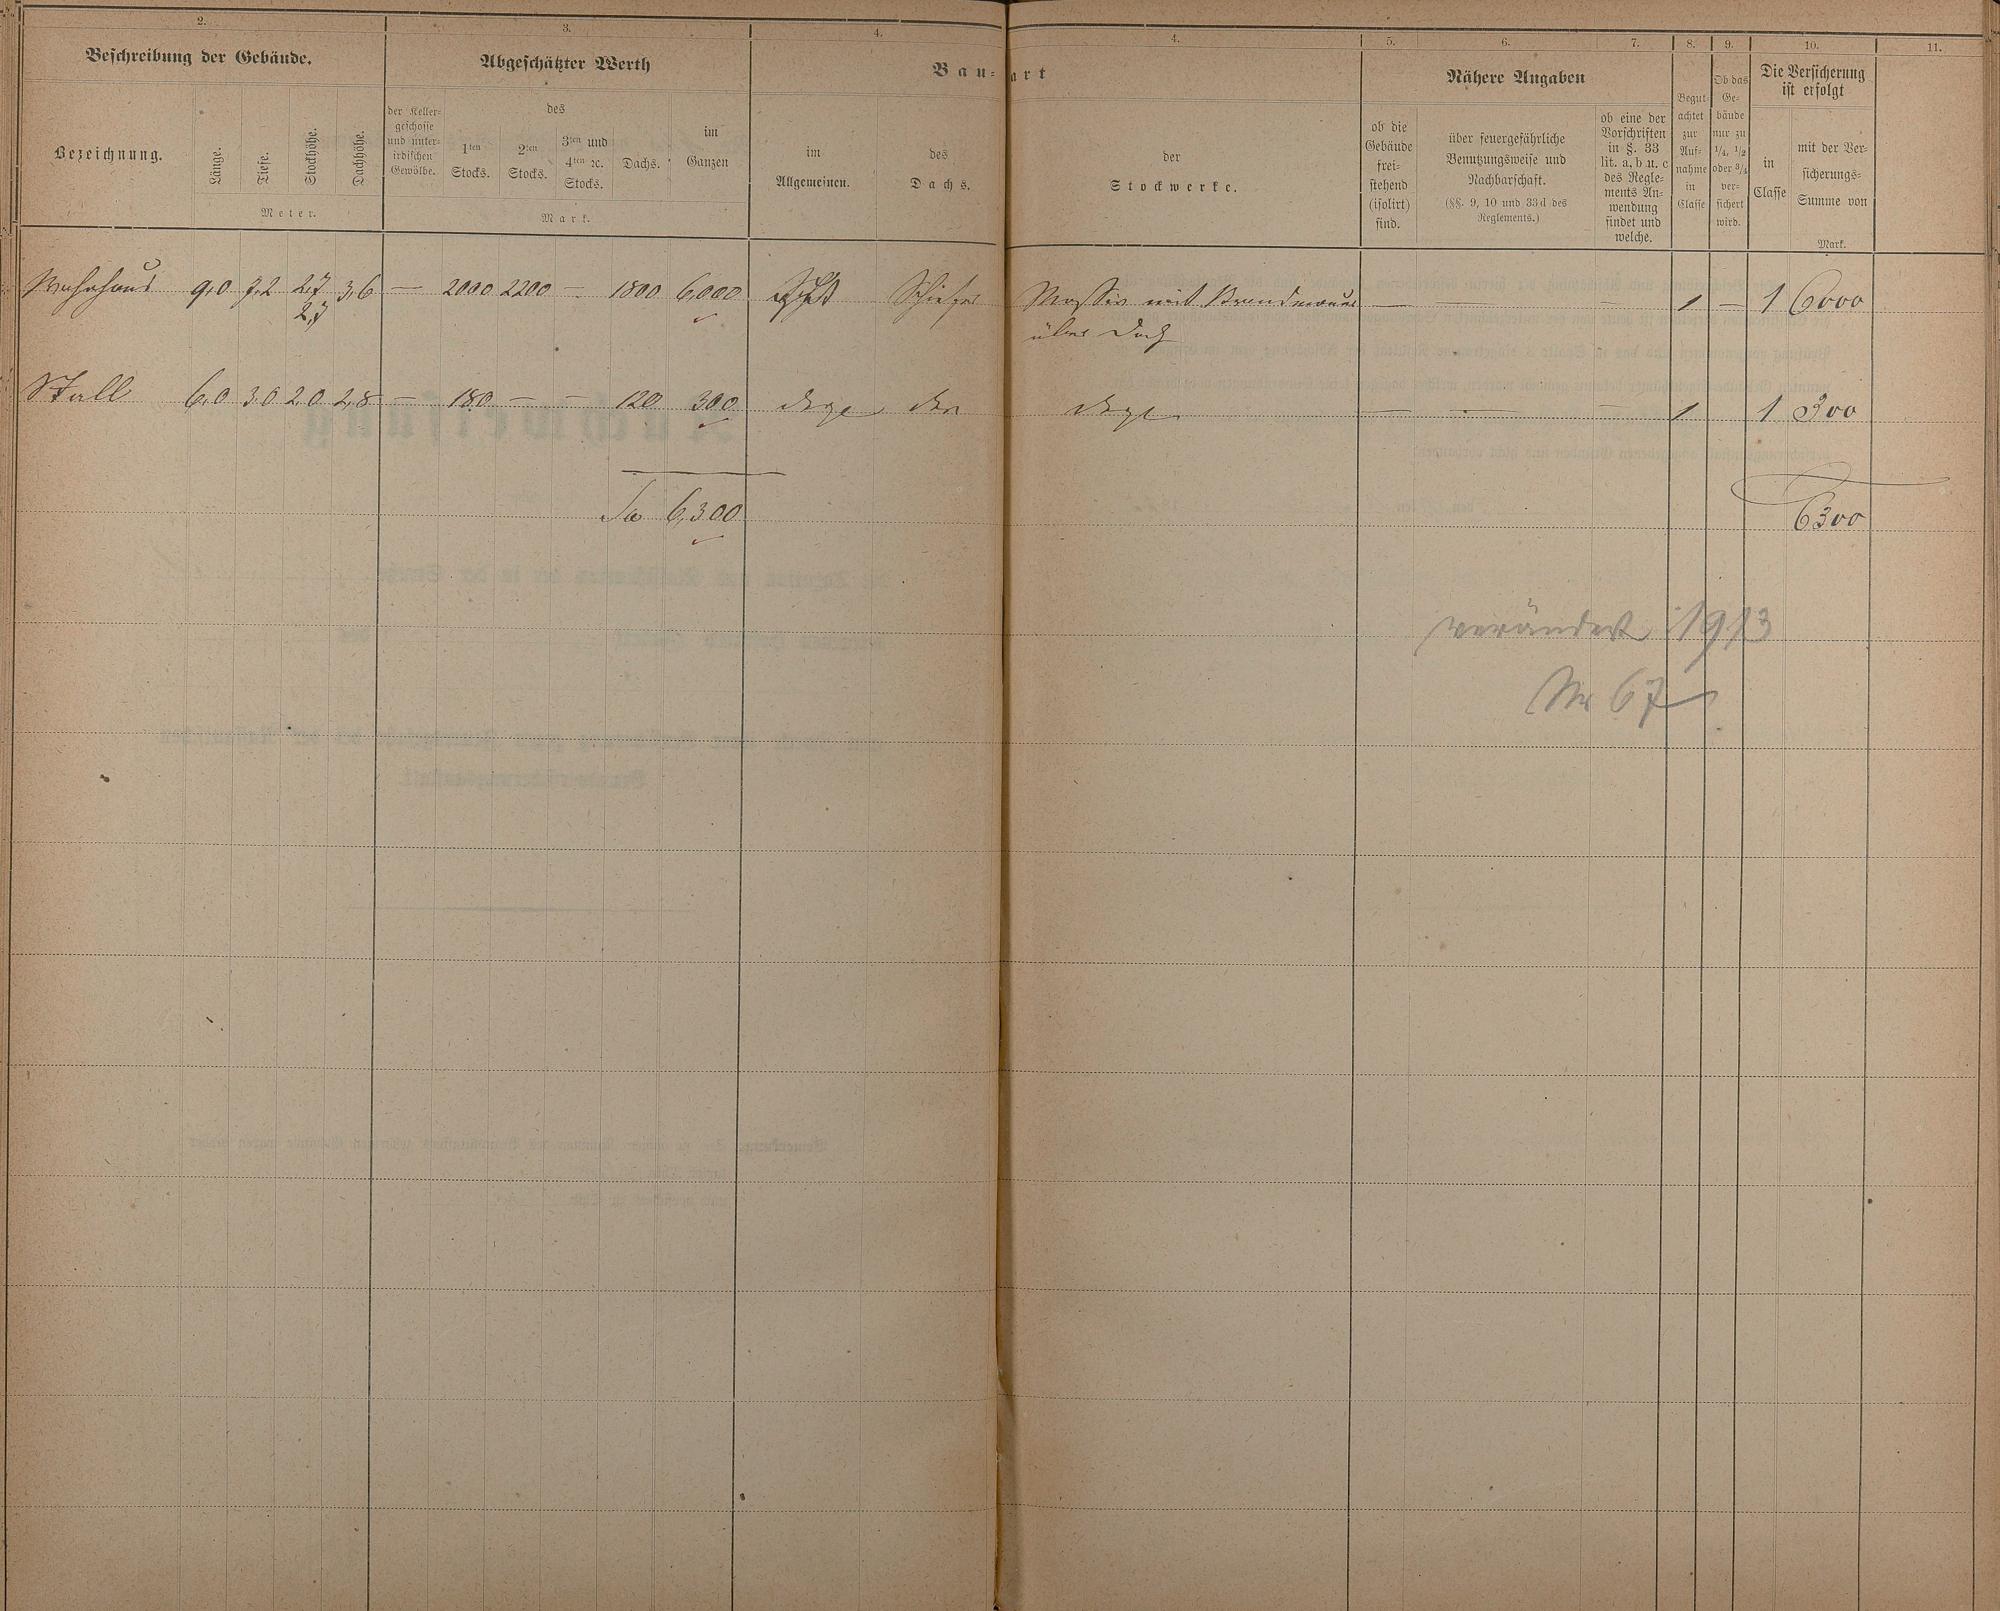 2.
3.
4.
4.
5.
6.
7.
8.
9.
10.
11.
Beschreibung der Gebäude.
Abgeschätzter Werth
Bau-
art
Nähere Angaben
Begut-
achtet
zur
Auf-
nahme
in
Classe
Ob das
Ge-
bäude
nur zu
1/4, 1/2
oder 3/4
ver-
sichert
wird.
Die Versicherung
ist erfolgt
Bezeichnung.
Länge.
Tiefe.
Stockhöhe.
Dachhöhe.
Meter.
der Keller-
geschosse
und unter-
irdischen
Gewölbe.
des
1ten
Stocks.
2ten
Stocks.
3ten und
4ten ec.
Stocks.
Dachs.
im
Ganzen
Mark.
im
Allgemeinen.
des
Dachs.
der
Stockwerke.
ob die
Gebäude
frei-
stehend
(isolirt)
sind.
über feuergefährliche
Benutzungsweise und
Nachbarschaft.
(§§. 9, 10 und 33d des
Reglements.)
ob eine der
Vorschriften
in §. 33
lit. a, b u. c
des Regle-
ments An-
wendung
findet und
welche.
in
Classe
mit der Ver-
sicherungs-
Summe von
Mark.
Wohnhaus 9,0 7,2 2,7 3,6 — 2000 2200 — 1800 6,000 Schiefer Massiv mit Brandmauer — — — 1 — 1 6000
2,7 über Dach
Stall 6,0 3,0 2,0 2,8 — 180 — — 120 300 — — — 1 1 300
Sa 6,300
6300
verändert 1913
Nr 67